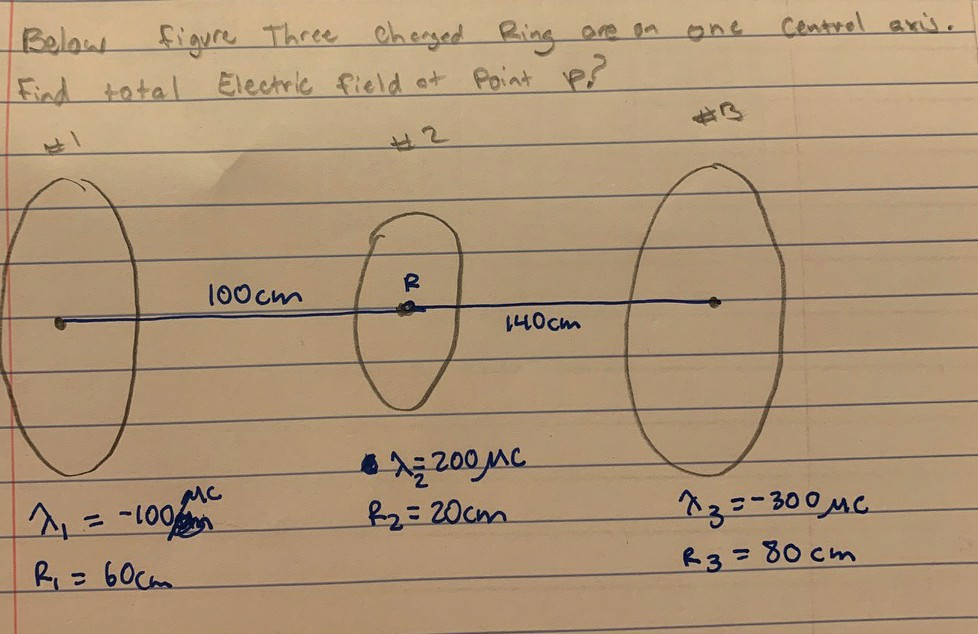 Below figure Three Charged Ring are on one Central axis.
Find total Electric field at Point P?
#1 #2 #3
R
100cm
140cm
λ₂=200μC
λ₁ = -100μC
R₂=20cm
λ₃=-300μC
R₁ = 60cm
R₃ = 80cm